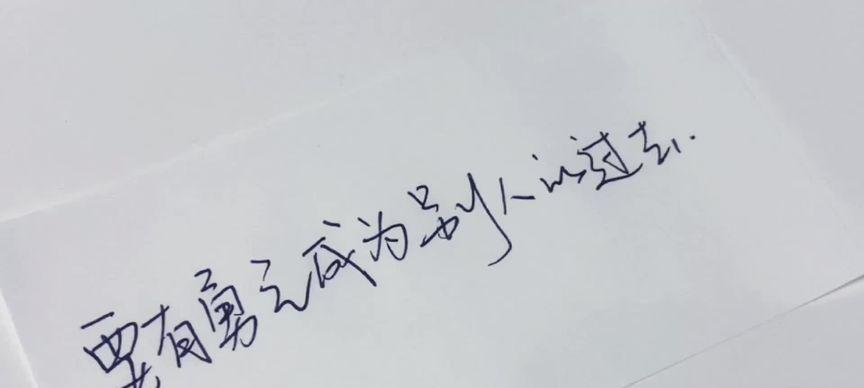 要有勇气成为别人的过去.